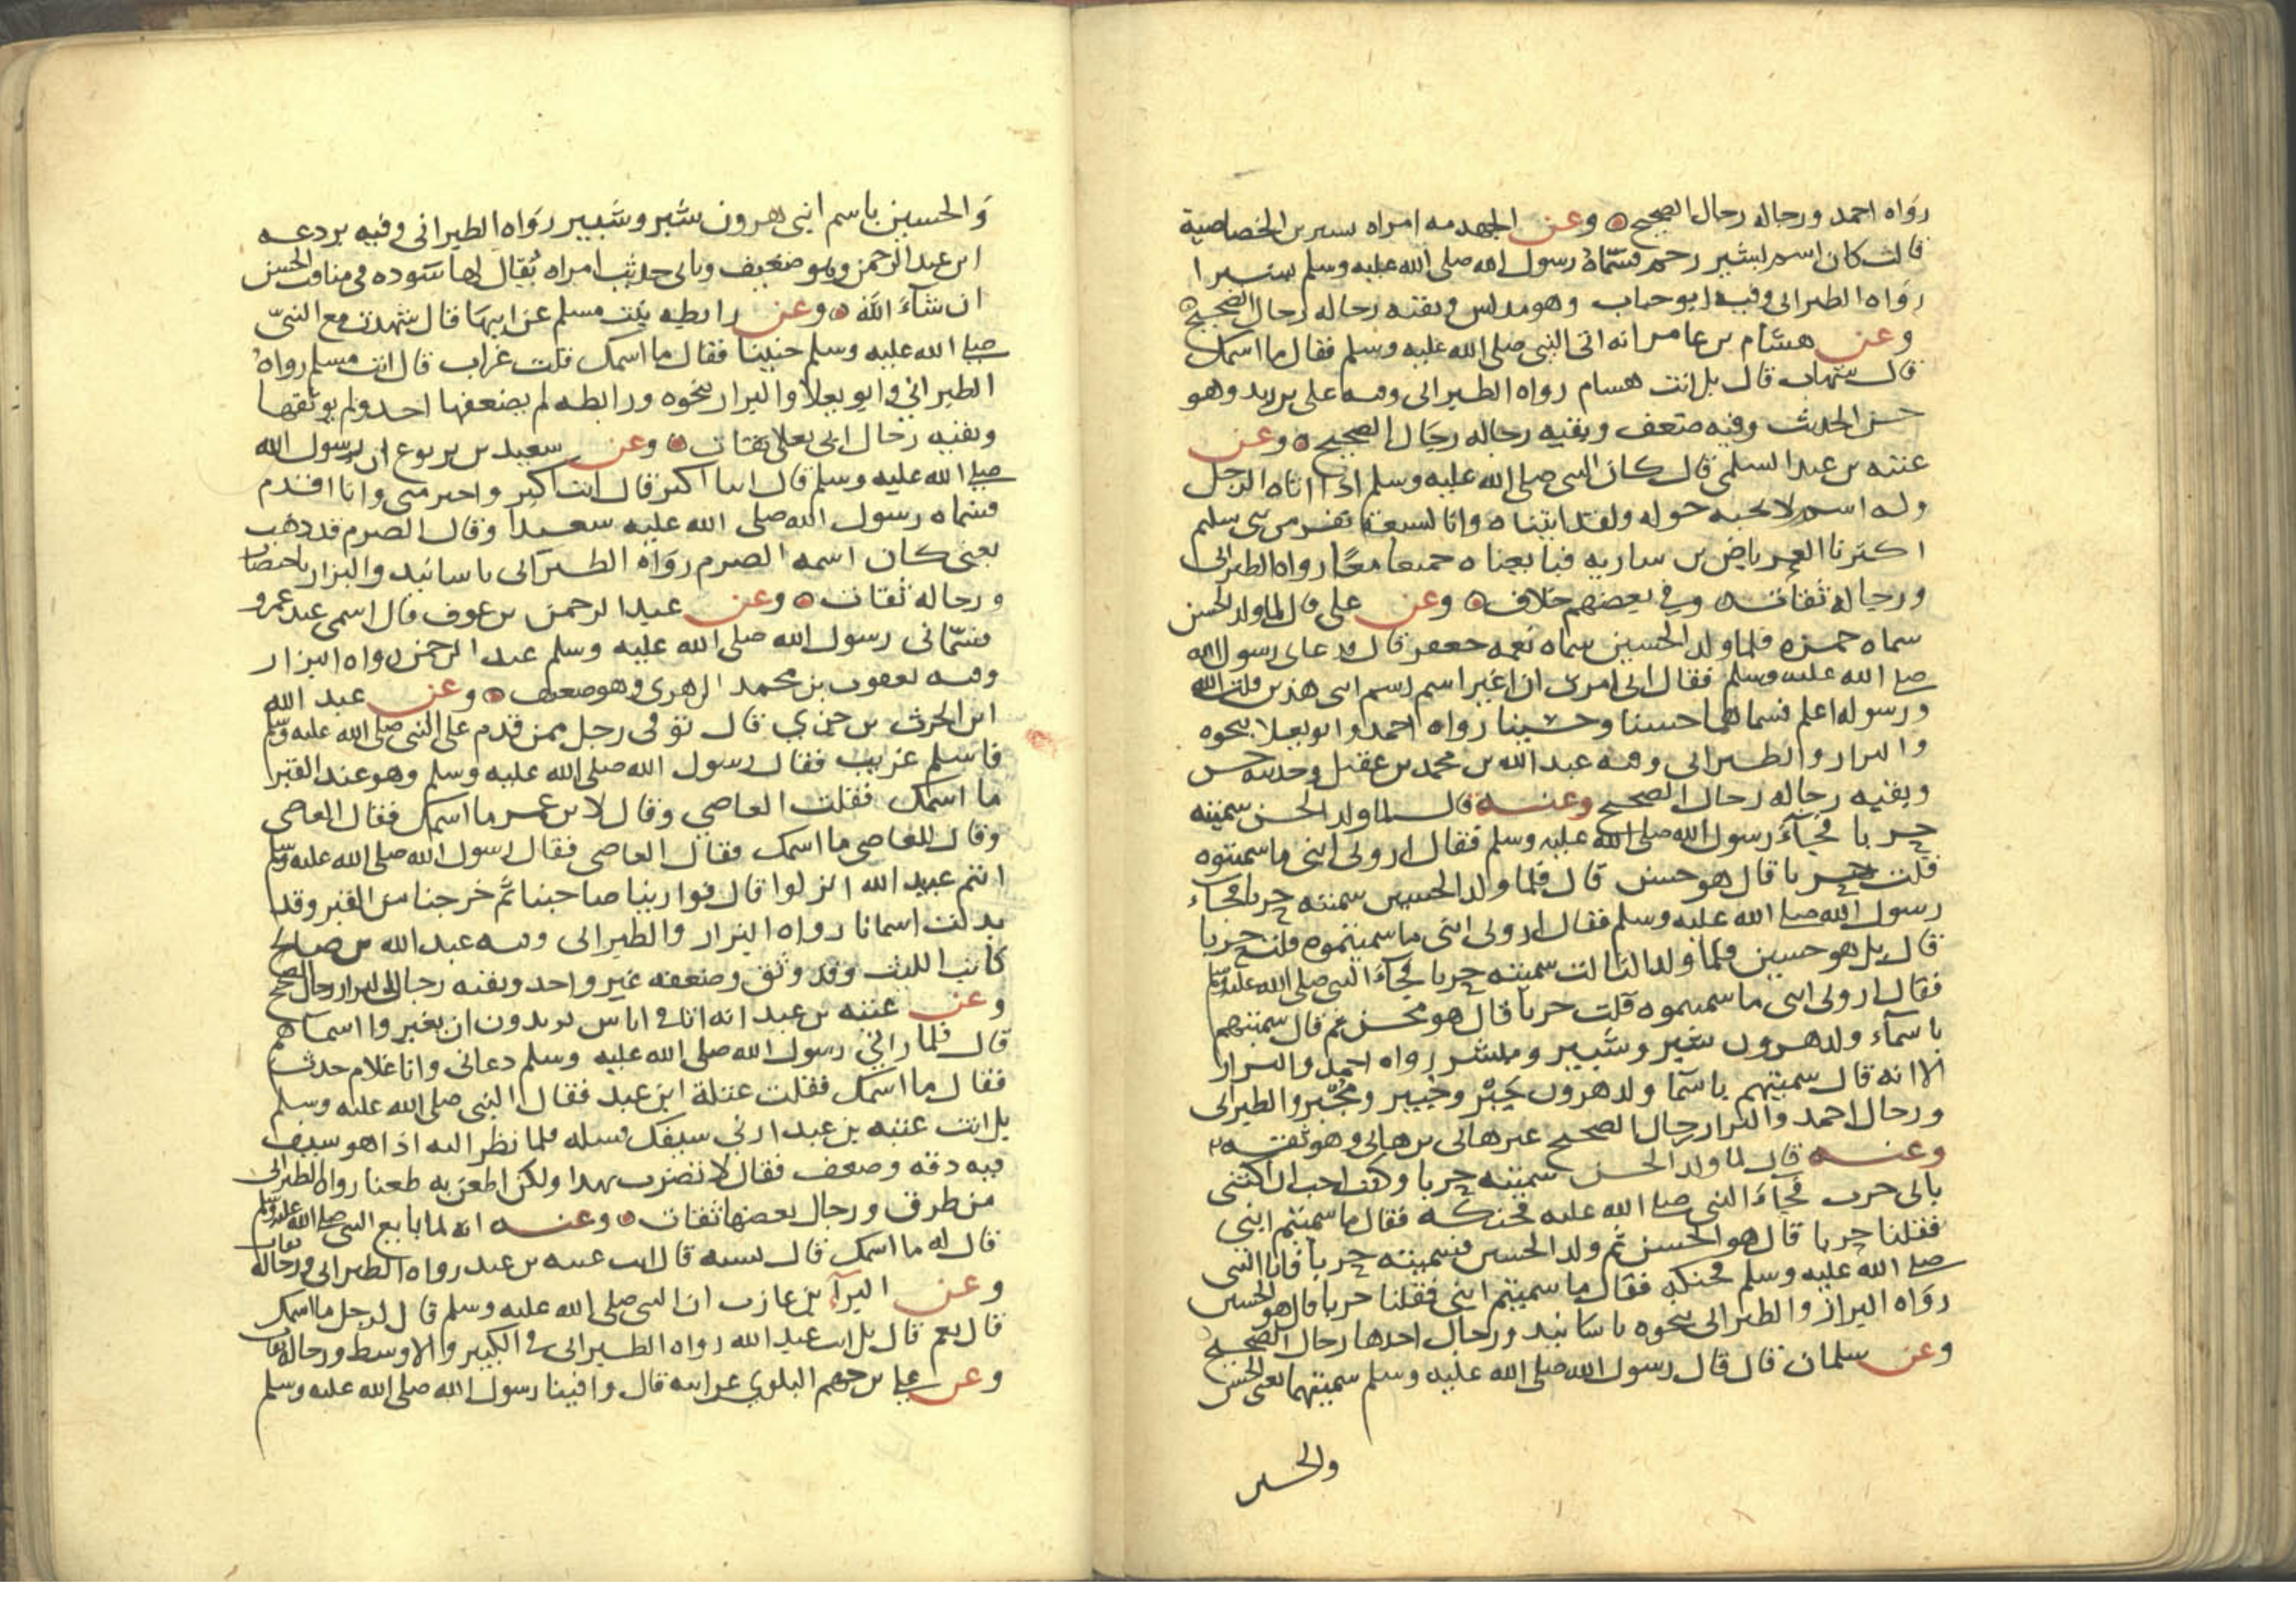 رواه احمد ورجاله رجال الصحيح وعن الجهدمه امراه بشير بن الخصاصية
قالت كان اسم بشير زحم فسماه رسول الله صلى الله عليه وسلم بشيرا
رواه الطبرانى وفيه ابو جناب وهو مدلس وبقيه رجاله رجال الصحيح
وعن هشام بن عامر انه اتى النبى صلى الله عليه وسلم فقال ما اسمك
قال شهاب قال بل انت هشام رواه الطبرانى وفيه على بن زيد وهو
حسن الحديث وفيه ضعف وبقيه رجاله رجال الصحيح وعن
عتبه بن عبد السلمى قال كان النبى صلى الله عليه وسلم اذا اتاه الرجل
وله اسم لا يحبه حوله ولقد اتيناه وانا لسبعة نفر من بنى سليم
اكبرنا العرباض بن ساريه فبايعناه جميعا معًا رواه الطبرانى
ورجاله ثقات وفى بعضهم خلاف وعن على قال لما ولد الحسن
سماه حمزه فلما ولد الحسين سماه بعمه جعفر قال فدعانى رسول الله
صلى الله عليه وسلم فقال انى امرت ان اغير اسم ابنى هذين قلت الله
ورسوله اعلم فسماهما حسنا وحسينا رواه احمد وابو يعلا بنحوه
والبزار والطبرانى وفيه عبد الله بن محمد بن عقيل وحديثه حسن
وبقيه رجاله رجال الصحيح وعنه قال لما ولد الحسن سميته
حربا فجآء رسول الله صلى الله عليه وسلم فقال ارونى ابنى ما سميتوه
قلت حربا قال هو حسن قال فلما ولد الحسين سميته حربا فجاء
رسول الله صلى الله عليه وسلم فقال ارونى ابنى ما سميتموه قلت حربا
قال بل هو حسين فلما ولد الثالث سميته حربا فجآء النبى صلى الله عليه وسلم
فقال ارونى ابنى ما سميتموه قلت حربا قال هو محسن ثم قال سميتهم
باسمآء ولد هرون شبر وشبير ومشبر رواه احمد والبزار
الا انه قال سميتهم باسما ولد هرون جبر وجبير ومجبر والطبرانى
ورجال احمد والبزار رجال الصحيح غير هانى بن هانى وهو ثقه
وعنه قال لما ولد الحسن سميته حربا وكنت احب ان اكتنى
بابى حرب فجآء النبى صلى الله عليه فحنكه فقال ما سميتم ابنى
فقلنا حربا قال هو الحسن ثم ولد الحسين فسميته حربا فاتا النبى
صلى الله عليه وسلم فحنكه فقال ما سميتم ابنى فقلنا حربا قال هو الحسين
رواه البزار والطبرانى بنحوه باسانيد ورجال احدها رجال الصحيح
وعن سلمان قال قال رسول الله صلى الله عليه وسلم سميتهما يعنى الحسن
والحسين
والحسين باسم ابنى هرون شبر وشبير رواه الطبرانى وفيه بردعه
ابن عبد الرحمن وهو ضعيف وياتى حديث امراه يقال لها سوده فى مناقب الحسن
ان شآء الله وعن رابطه بنت مسلم عن ابيها قال شهدت مع النبى
صلى الله عليه وسلم حنينا فقال ما اسمك قلت غراب قال انت مسلم رواه
الطبرانى وابو يعلا والبزار بنحوه ورابطه لم يضعفها احد ولم يوثقها
وبقيه رجال ابى يعلى ثقات وعن سعيد بن يربوع ان رسول الله
صلى الله عليه وسلم قال اينا اكبر قال انت اكبر واخير منى وانا اقدم
فسماه رسول الله صلى الله عليه سعيدا وقال الصرم قد ذهب
يعنى كان اسمه الصرم رواه الطبرانى باسانيد والبزار باختصار
ورجاله ثقات وعن عبد الرحمن بن عوف قال اسمى عبد عمرو
فسمانى رسول الله صلى الله عليه وسلم عبد الرحمن رواه البزار
وفيه يعقوب بن محمد الزهرى وهو ضعيف وعن عبد الله
ابن الحرث بن جزي قال توفى رجل ممن قدم على النبى صلى الله عليه وسلم
فاسلم غريب فقال رسول الله صلى الله عليه وسلم وهو عند القبر
ما اسمك فقلت العاصي وقال لابن عمر ما اسمك فقال العاصى
وقال للعاصى ما اسمك فقال العاصى فقال رسول الله صلى الله عليه وسلم
انتم عبيد الله انزلوا قال فوارينا صاحبنا ثم خرجنا من القبر وقد
بدلت اسمانا رواه البزار والطبرانى وفيه عبد الله بن صالح
كاتب الليث وقد وثق وضعفه غير واحد وبقيه رجال البزار رجال الصحيح
وعن عتبه بن عبد انه اتا فى اناس يريدون ان يغيروا اسماهم
قال فلما رانى رسول الله صلى الله عليه وسلم دعانى وانا غلام حدث
فقال ما اسمك فقلت عتلة ابن عبد فقال النبى صلى الله عليه وسلم
بل انت عتبه بن عبد ارنى سيفك فسله فلما نظر اليه اذا هو سيف
فيه دقه وضعف فقال لا تضرب بهذا ولكن اطعن به طعنا رواه الطبرانى
من طرق ورجال بعضها ثقات وعنه انه لما بايع النبى صلى الله عليه وسلم
قال له ما اسمك قال نشبه قال انت عتبه بن عبد رواه الطبرانى ورجاله ثقات
وعن البرآء بن عازب ان النبى صلى الله عليه وسلم قال لرجل ما اسمك
قال نعم قال بل انت عبد الله رواه الطبرانى فى الكبير والاوسط ورجاله ثقات
وعن على بن جهم البلوي عن ابيه قال وافينا رسول الله صلى الله عليه وسلم